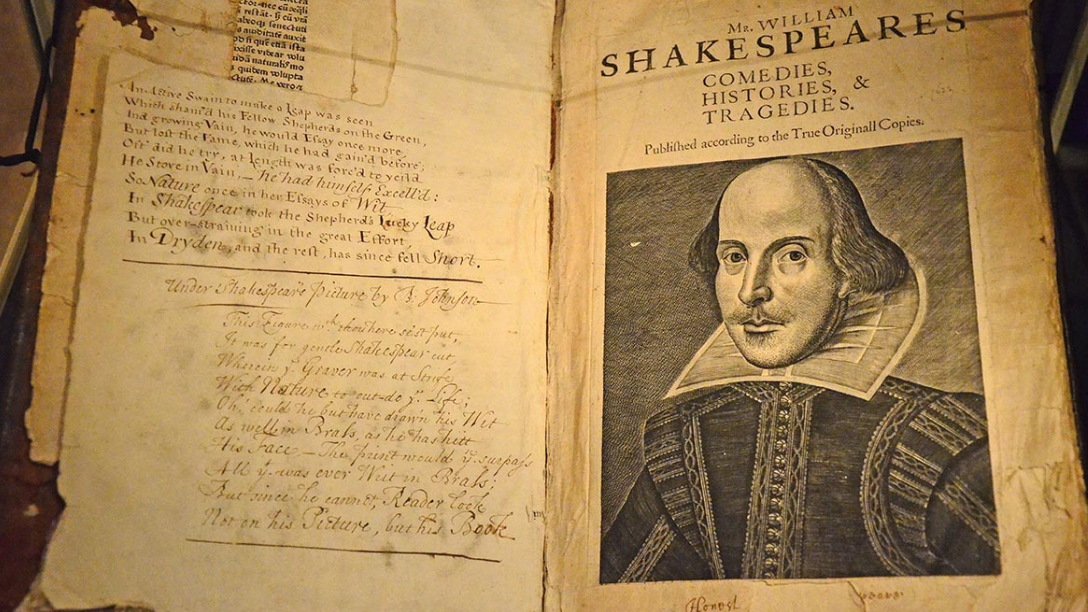 An Active Swain to make a Leap was seen
Which sham'd his Fellow Shepherds on the Green,
And growing Vain, he would Essay once more,
But lost the Fame, which he had gain'd before;
Oft' did he try, at Length was forc'd to yeild
He Strove in Vain, – he had himself Excell'd:
So Nature once in her Essays of Wit
In Shakespear took the Shepherd's Lucky Leap
But over-straining in the great Effort,
In Dryden, and the rest, has since fell Short.
Under Shakespears Picture by B: Johnson
This Figure wch. thou here seest put,
It was for gentle Shakespear cut
Wherein ye. Graver was at Strife
With Nature to out-do ye. Life;
Oh! could he but have drawn his Wit
As well in Brass, as he has hitt
His Face – The print would yn. surpass
All yt. was ever Writ in Brass;
But since he cannot, Reader look
Not on his Picture, but his Book
Mr. WILLIAM
SHAKESPEARES
COMEDIES,
HISTORIES, &
TRAGEDIES.
Publiſhed according to the True Originall Copies.
Honest